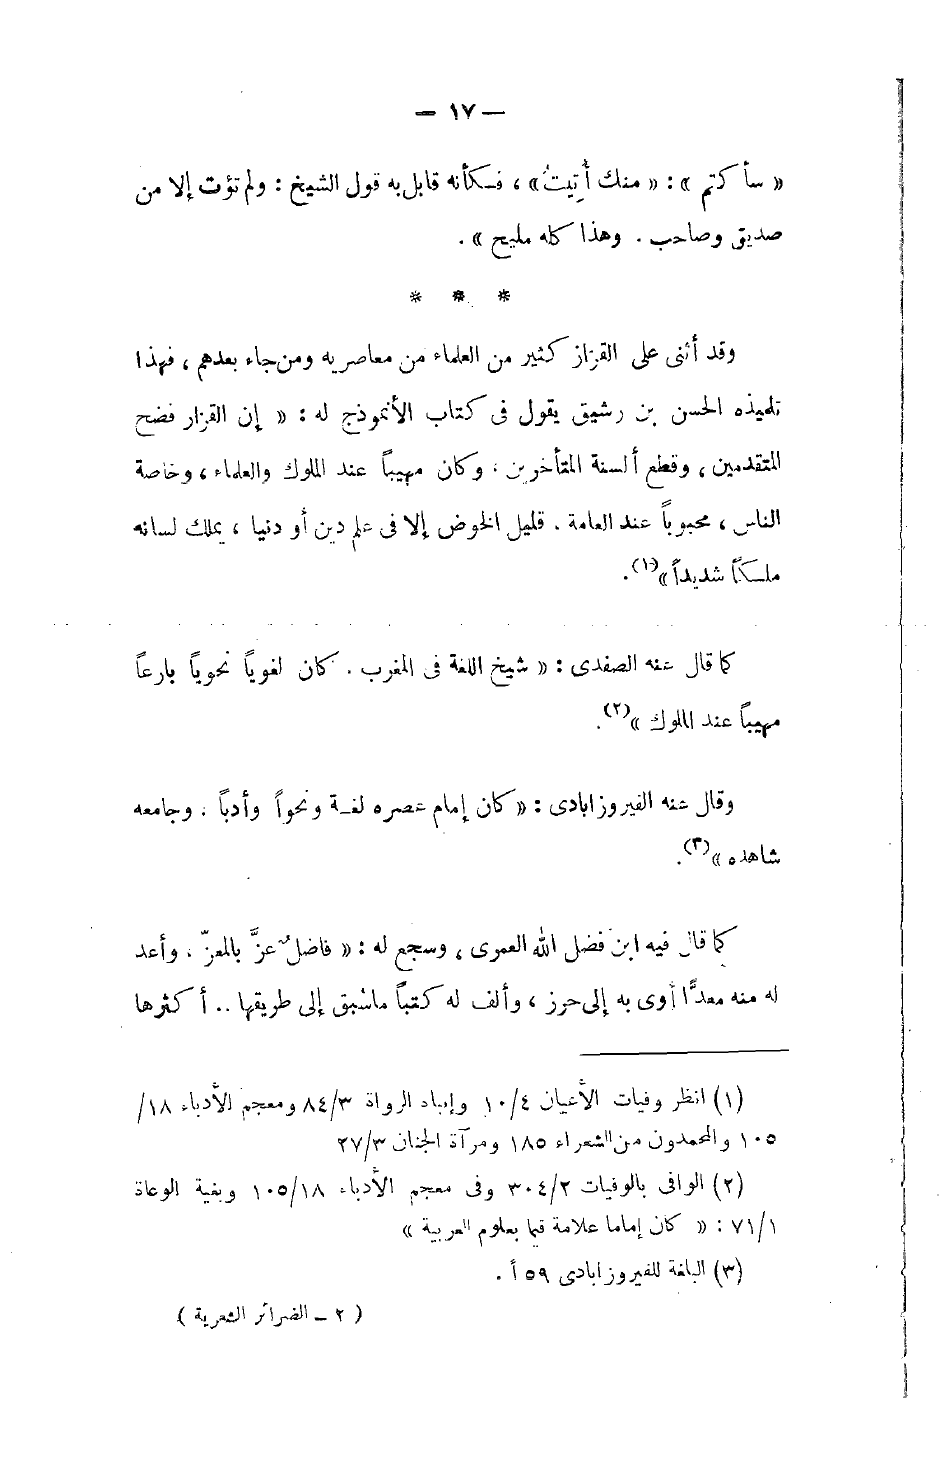 — ١٧ —
« سأكتم » : « منك أُتِيتُ » ، فكأنه قابل به قول الشيخ : ولم تؤت إلا من
صديق وصاحب . وهذا كله مليح » .
* * *
وقد أثنى على القزاز كثير من العلماء من معاصريه ومن جاء بعدهم ، فهذا
تلميذه الحسن بن رشيق يقول فى كتاب الأنموذج له : « إن القزاز فضح
المتقدمين ، وقطع ألسنة المتأخرين ، وكان مهيباً عند الملوك والعلماء ، وخاصة
الناس ، محبوباً عند العامة . قليل الخوض إلا فى علم دين أو دنيا ، يملك لسانه
ملكاً شديداً »(١).
كما قال عنه الصفدى : « شيخ اللغة فى المغرب . كان لغوياً نحوياً بارعاً
مهيباً عند الملوك »(٢).
وقال عنه الفيروزابادى : « كان إمام عصره لغة ونحواً وأدباً . وجامعه
شاهده »(٣).
كما قال فيه ابن فضل الله العمرى ، وسجع له : « فاضل عزَّ بالمعزّ ، وأعد
له منه معدًّا أوى به إلى حرز ، وألف له كتباً ماسُبق إلى طريقها .. أكثرها
(١) انظر وفيات الأعيان ١٠/٤ وإنباه الرواة ٨٤/٣ ومعجم الأدباء ١٨/
١٠٥ والمحمدون من الشعراء ١٨٥ ومرآة الجنان ٢٧/٣
(٢) الوافى بالوفيات ٣٠٤/٢ وفى معجم الأدباء ١٠٥/١٨ وبغية الوعاة
٧١/١ : « كان إماما علامة قيما بعلوم العربية »
(٣) البلغة للفيروزابادى ٥٩ أ .
( ٢ – الضرائر الشعرية )